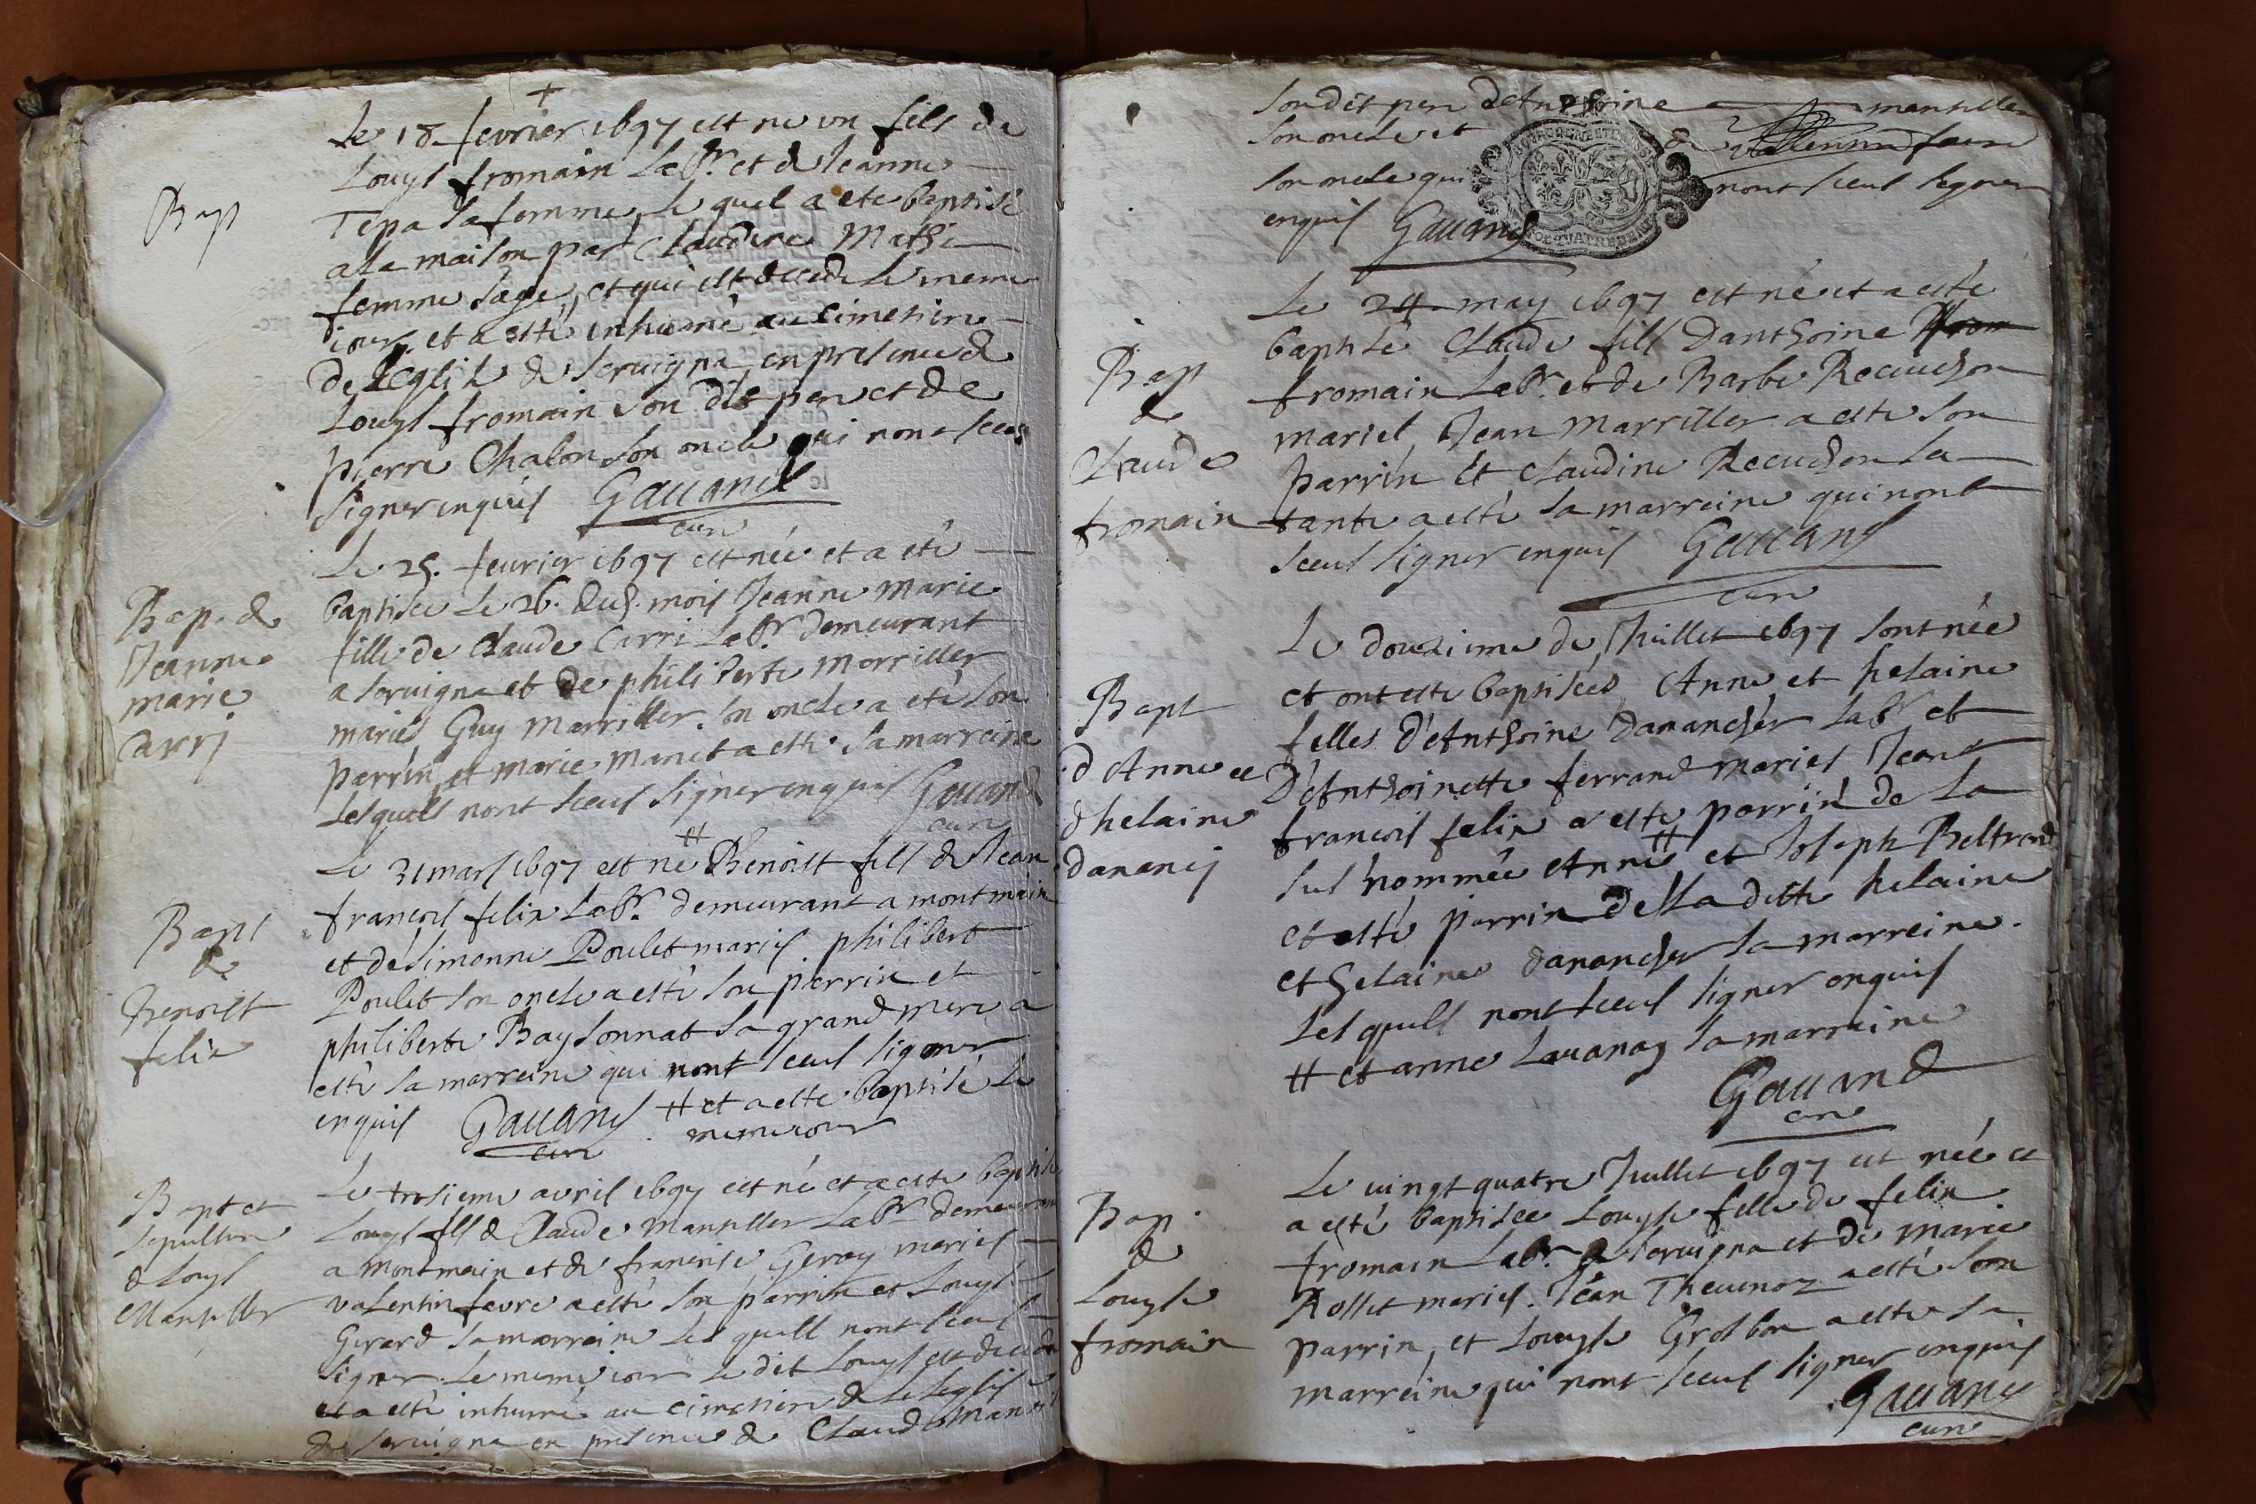 Le 18 fevrier 1697 est ne un fils de
Bap
Louys fromain Labr. et de Jeanne
Tepa sa femme, le quel a ete baptisé
a la maison par Claudine
femme sage, et qui est decede le meme
iour, et a esté inhumé au cimetiere
de Leglise de Servigna en presence de
Louys fromain son dit pere et de
pierre Chalon son oncle qui nont sceu
signer enquis Gauand
curé
Le 25. feurier 1697 est née et a eté
Bap. de
Jeanne
marie
Carri
baptisée Le 26. dud. mois Jeanne marie
fille de Claude Carri Labr demeurant
a servigna et de philiberte morriller
mariés Guy marriller son oncle a eté son
parrin et marie manet a esté sa marreine
Lesquels nont sceus signer enquis Gauand
curé
Le 31 mars 1697 est né # Benoist fils de Jean
Bapt
de
Benoist
felix
francois felix Labr. demeurant a montmain
et de Simonne Poulet mariés philibert
Poulet son oncle a esté son parrin et
philiberte Baysonnat sa grand mere a
esté sa marreine qui nont sceus signer
enquis Gauand # et a esté baptisé le
curé meme iour
Le trosieme avril 1697 est né et a esté baptisé
Bapt et
sepulture
de Louys
Mansiller
Louys fils de Claude mansiller Labr demeurant
a montmain et de francoise Geroy mariés
valentin fevre a esté son parrin et Louyse
Girard sa marreine Les quells nont sceus
signer. Le meme iour Le dit Louys est decede
et a esté inhumé au cimetiere de Leglise
de servigna en presence de Claude Man
son dit pere d'Anthoine mansiller
son oncle et de vallentin faivre
son oncle qui nont sceus signer
enquis Gauand
Le 24 may 1697 est né et a esté
baptisé Claude fils Danthoine
Bap
de
Claude
fromain
fromain Labr. et de Barbe Recuchon
mariés, Jean marriller a esté son
parrin Et Claudine Recuchon sa
tante a esté sa marreine qui nont
sceus signer enquis Gauand
curé
Le douzieme de Juillet 1697 sont née
Bapt
d Anne et
d helaine
dananchi
et ont esté baptisées Anne et helaine
filles d'Anthoine Danancher Labr et
D'Anthoinette ferrand mariés Jean
francois felix a esté parrin de La
sus nommée Anne # et Joseph Beltrand
et esté parrin de La ditte helaine
et helaine danancher sa marreine.
Les quells nont sceus signer enquis
# et anne Lauanay sa marreine
Gauand
curé
Le vingt quatre Juillet 1697 est née et
Bap.
de
Louyse
fromain
a esté baptisée Louyse fille de felix
fromain Labr. a servigna et de marie
Rosset mariés. Jean Theuenoz a esté son
parrin, et Louyse Grosbon a esté sa
marreine qui nont sceus signer enquis
Gauand
curé